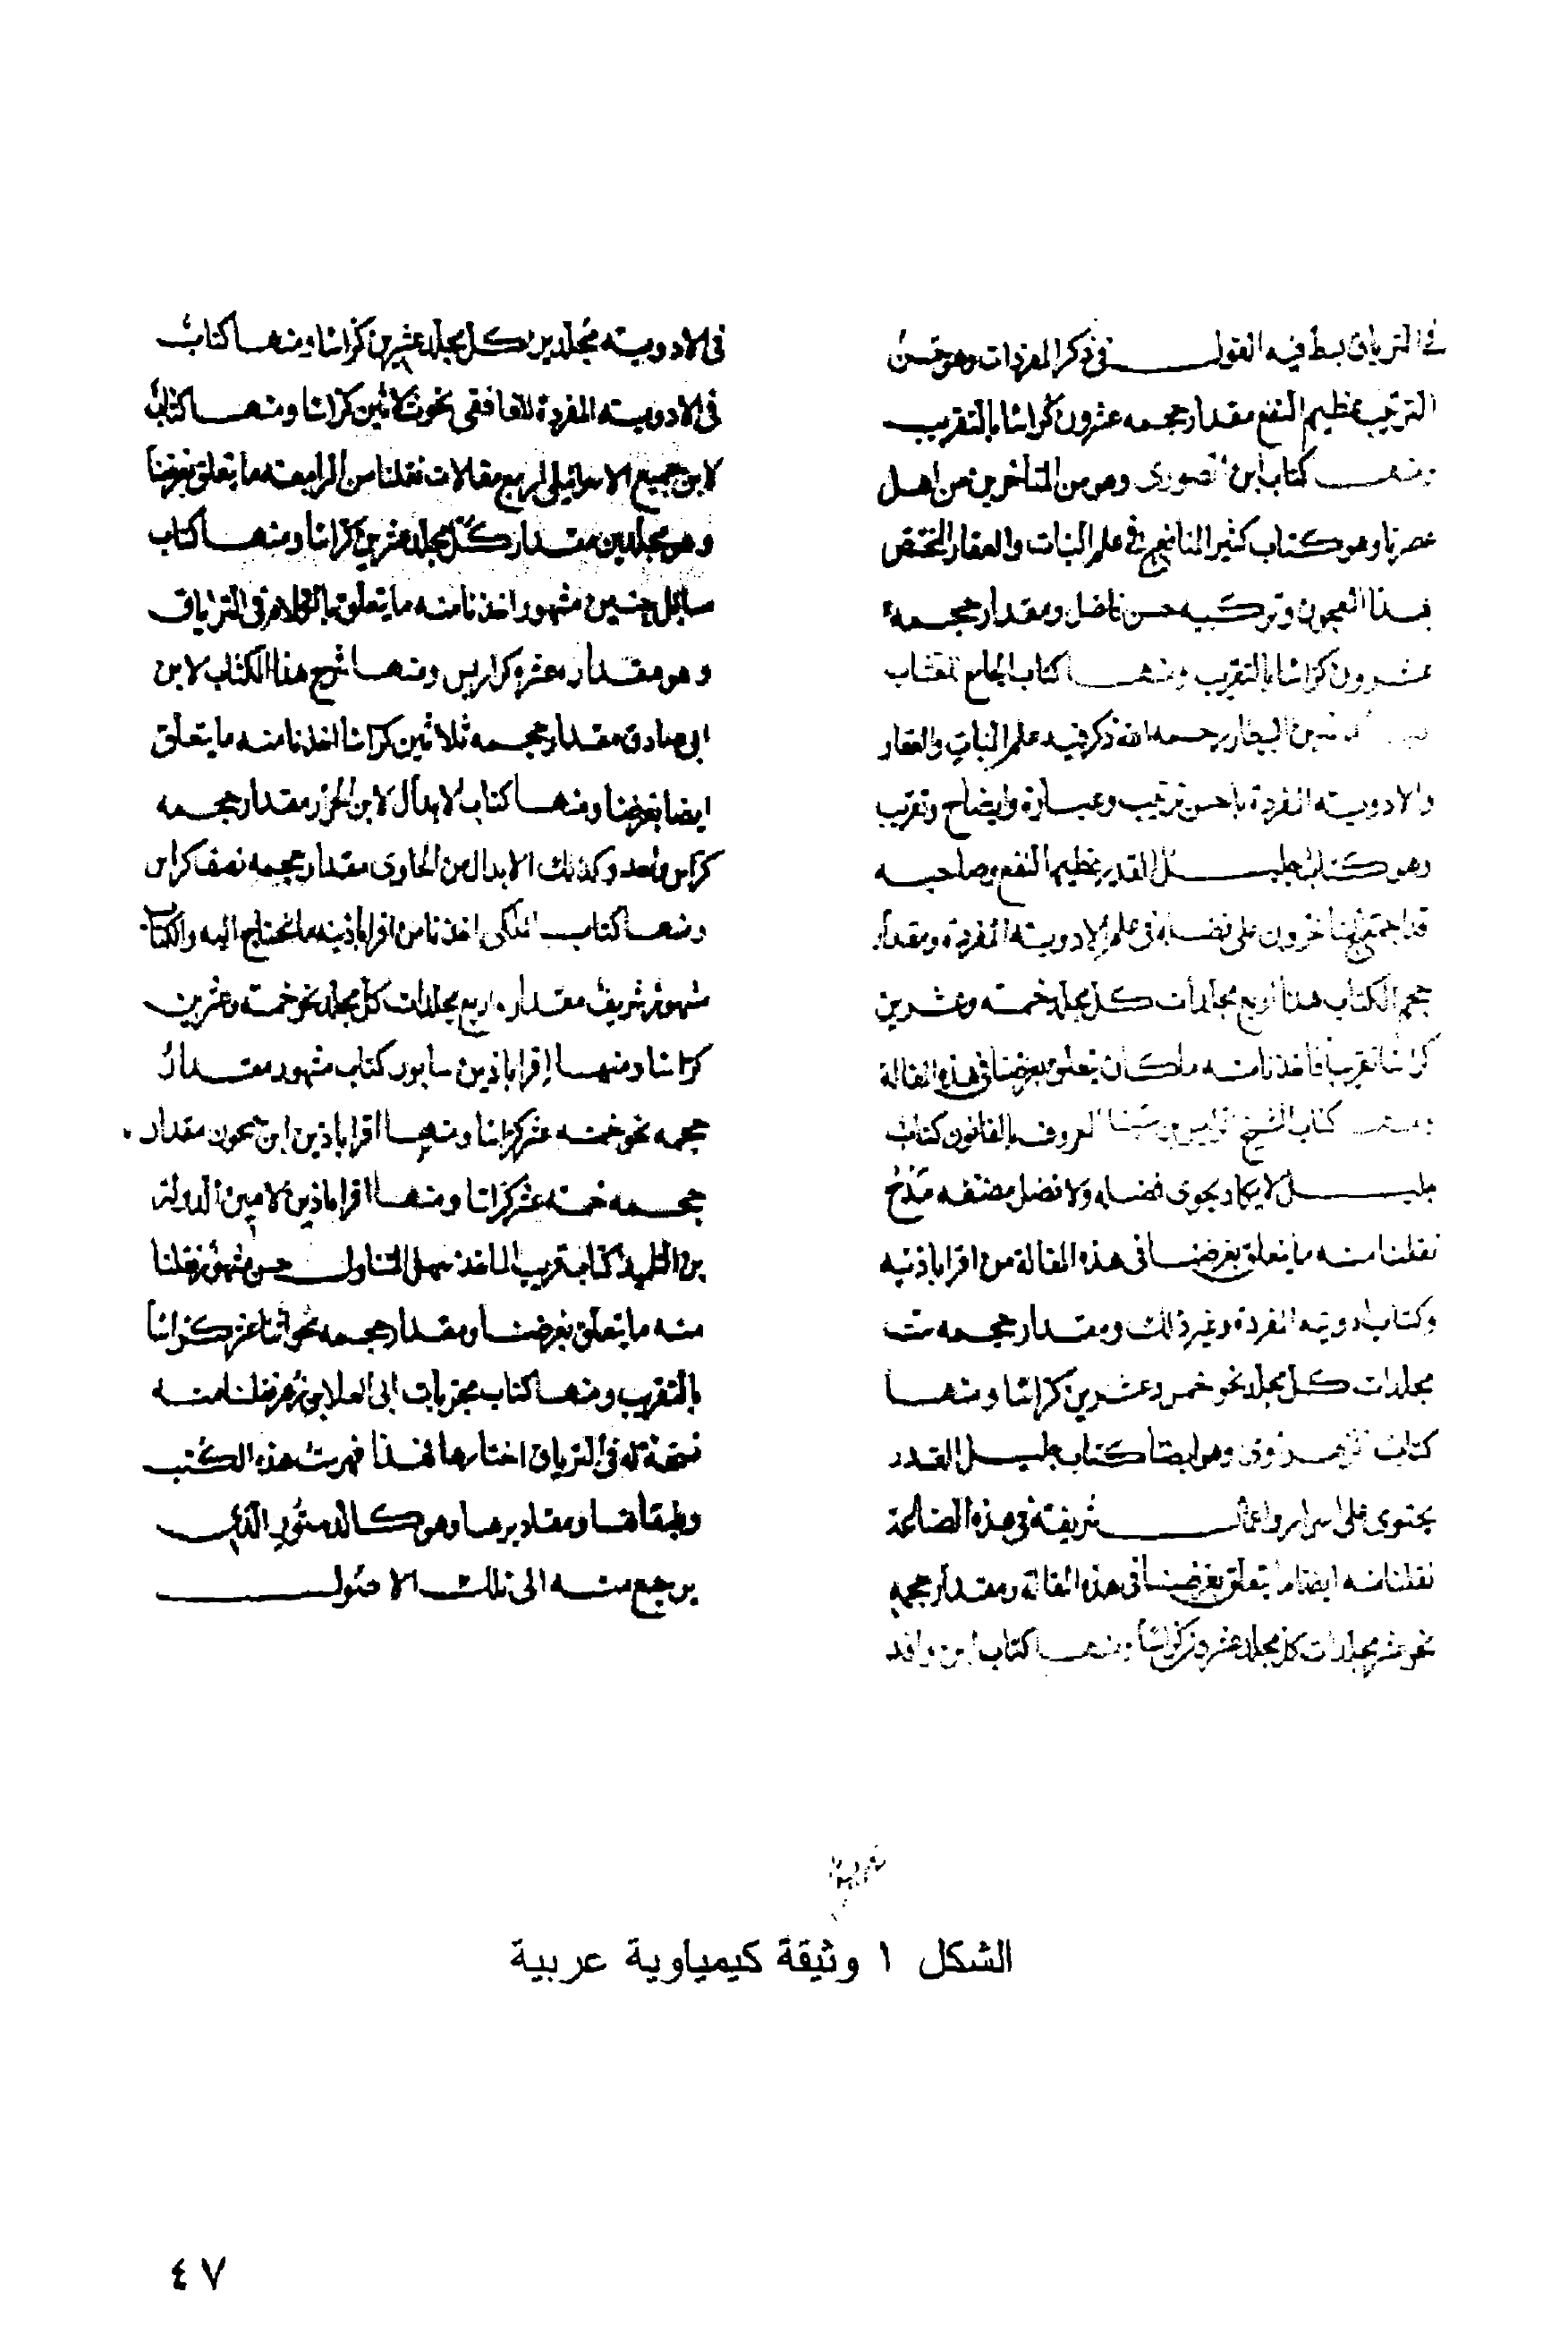 في الترياق بسط فيه القول في ذكر المفردات وهو حسن
الترتيب عظيم النفع مقدار حجمه عشرون كراسا بالتقريب
ومنها كتاب ابن الصوري وهو من المتأخرين من اهل
عصرنا وهو كتاب كثير المنافع في علم النبات والعقار المختص
بهذا المعجون وتركيبه حسن فاضل ومقدار حجمه
عشرون كراسا بالتقريب ومنها كتاب الجامع
بن البيطار رحمه الله ذكر فيه علم النبات والعقار
والادوية المفردة باحسن ترتيب وعبارة وايضاح وتقريب
وهو كتاب جليل القدر عظيم النفع وصاحبه
المتأخرون على فضله في علم الادوية المفردة ومقدار
حجم الكتاب هذا أربع مجلدات كل مجلد خمسة وعشرين
كراسا تقريبا فاخذنا منه ما كان يتعلق بغرضنا في هذه المقالة
ومنها كتاب الشيخ المعروف بالقانون كتاب
جليل لا يكاد يحوى فضله ولا فضل مصنفه مدح
نقلنا منه ما يتعلق بغرضنا في هذه المقالة من اقراباذنيه
وكتاب ادويته المفردة وغير ذلك ومقدار حجمه ست
مجلدات كل مجلد نحو خمس وعشرين كراسا ومنها
كتاب وهو ايضا كتاب جليل القدر
يحتوى على اسرار واعمال شريفة في هذه الصناعة
نقلنا منه ايضا ما يتعلق بغرضنا في هذه المقالة ومقدار حجمه
نحو عشر مجلدات كل مجلد عشرون كراسا ومنها كتاب ابن وافد
في الادوية مجلدين كل مجلد عشرين كراسا ومنها كتاب
في الادوية المفردة للغافقي نحو ثلاثين كراسا ومنها كتاب
لابن جميع الاسرائيلي اربع مقالات نقلنا من الرابعة ما يتعلق بغرضنا
وهو مجلدين مقدار كل مجلد عشرين كراسا ومنها كتاب
مسائل حنين مشهور اخذنا منه ما يتعلق بالكلام في الترياق
وهو مقدار عشر كراريس ومنها شرح هذا الكتاب لابن
ابي صادق مقدار حجمه ثلاثين كراسا اخذنا منه ما يتعلق
ايضا بغرضنا ومنها كتاب الابدال لابن الجزار مقدار حجمه
كراس واحد وكذلك الابدال من الحاوى مقدار حجمه نصف كراس
ومنها كتاب الملكي اخذنا من اقراباذينه ما نحتاج اليه والكتاب
مشهور شريف مقداره اربع مجلدات كل مجلد نحو خمسة وعشرين
كراسا ومنها اقراباذين سابور كتاب مشهور مقدار
حجمه نحو خمسة عشر كراسا ومنها اقراباذين ابن مقدار
حجمه خمسة عشر كراسا ومنها اقراباذين لامين الدولة
بن التلميذ كتابه قريب المأخذ سهل التناول حسن مشهور نقلنا
منه ما يتعلق بغرضنا ومقدار حجمه نحو اثنا عشر كراسا
بالتقريب ومنها كتاب مجربات ابي العلا بن زهر نقلنا منه
نسخة له في الترياق اختارها فهذا فهرست هذه الكتب
وطبقاتها ومقاديرها وهو كالدستور الذي
يرجع منه الى تلك الاصول
الشكل ١ وثيقة كيمياوية عربية
٤٧